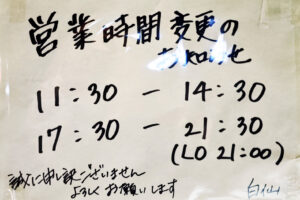 営業時間変更の
お知らせ
11:30 - 14:30
17:30 - 21:30
(LO 21:00)
誠に申し訳ございません
よろしくお願いします